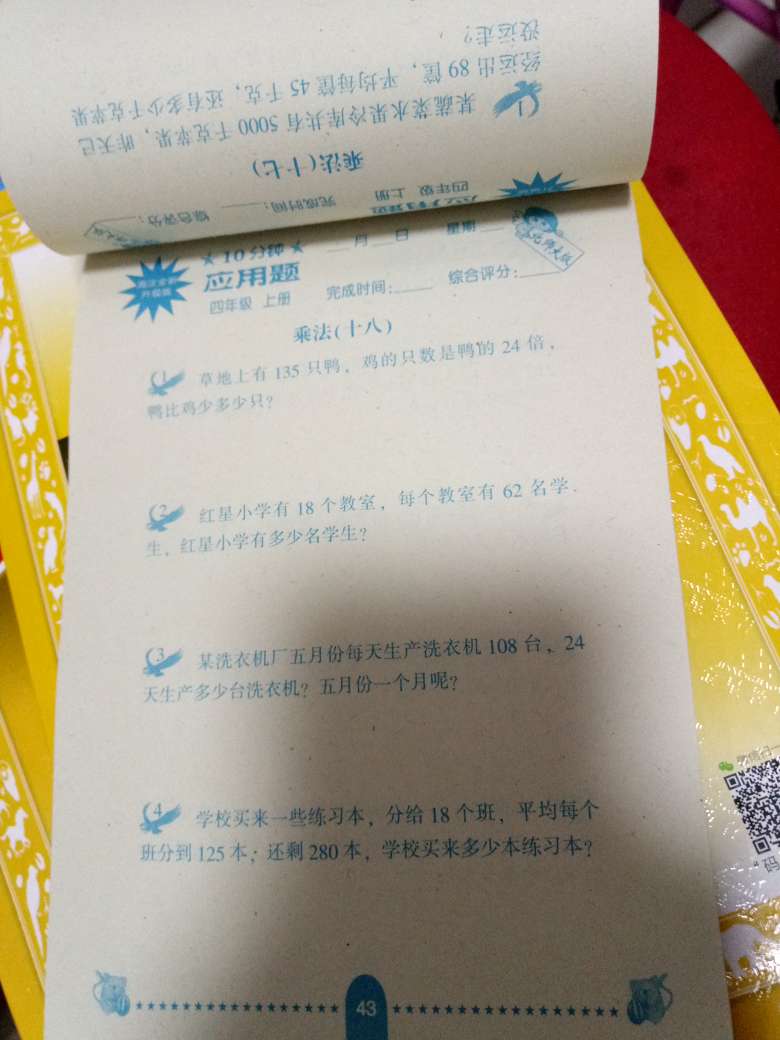 乘法(十七)
1 某蔬菜水果冷库共有 5000 千克苹果，昨天已
经运出 89 筐，平均每筐 45 千克，还有多少千克苹果
没运走？
四年级 上册
完成时间：
综合评分：
10分钟
月 日 星期
应用题
四年级 上册
完成时间：
综合评分：
北师大版
乘法(十八)
1 草地上有 135 只鸭，鸡的只数是鸭的 24 倍，
鸭比鸡少多少只？
2 红星小学有 18 个教室，每个教室有 62 名学
生，红星小学有多少名学生？
3 某洗衣机厂五月份每天生产洗衣机 108 台，24
天生产多少台洗衣机？五月份一个月呢？
4 学校买来一些练习本，分给 18 个班，平均每个
班分到 125 本；还剩 280 本，学校买来多少本练习本？
43